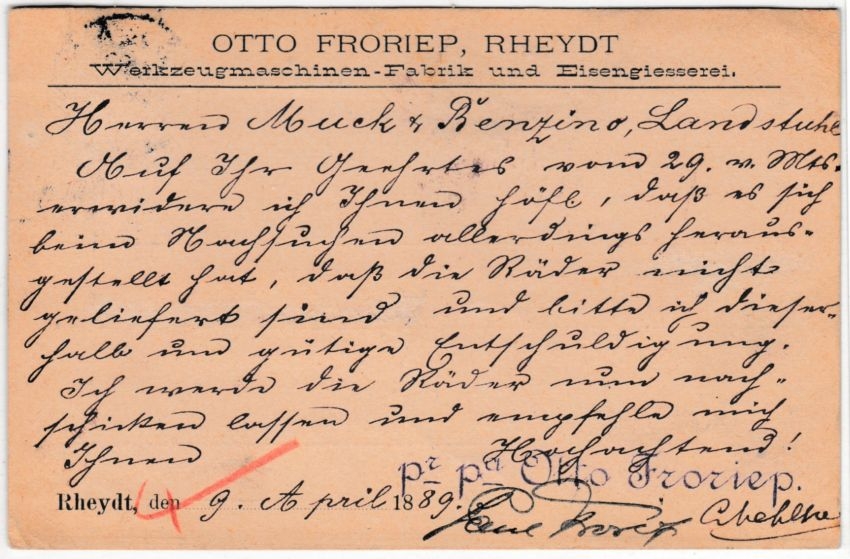 OTTO FRORIEP, RHEYDT
Werkzeugmaschinen-Fabrik und Eisengiesserei.
Herren Muck & Benzino, Landstuhl
Auf Ihr Geehrtes vom 29. v. Mts.
erwidere ich Ihnen höfl, daß es sich
beim Nachsuchen allerdings heraus-
gestellt hat, daß die Räder nicht
geliefert sind und bitte ich dieser-
halb um gütige Entschuldigung.
Ich werde die Räder nun nach-
schicken lassen und empfehle mich
Ihnen Hochachtend!
pr pa Otto Froriep.
Rheydt, den 9. April 1889.